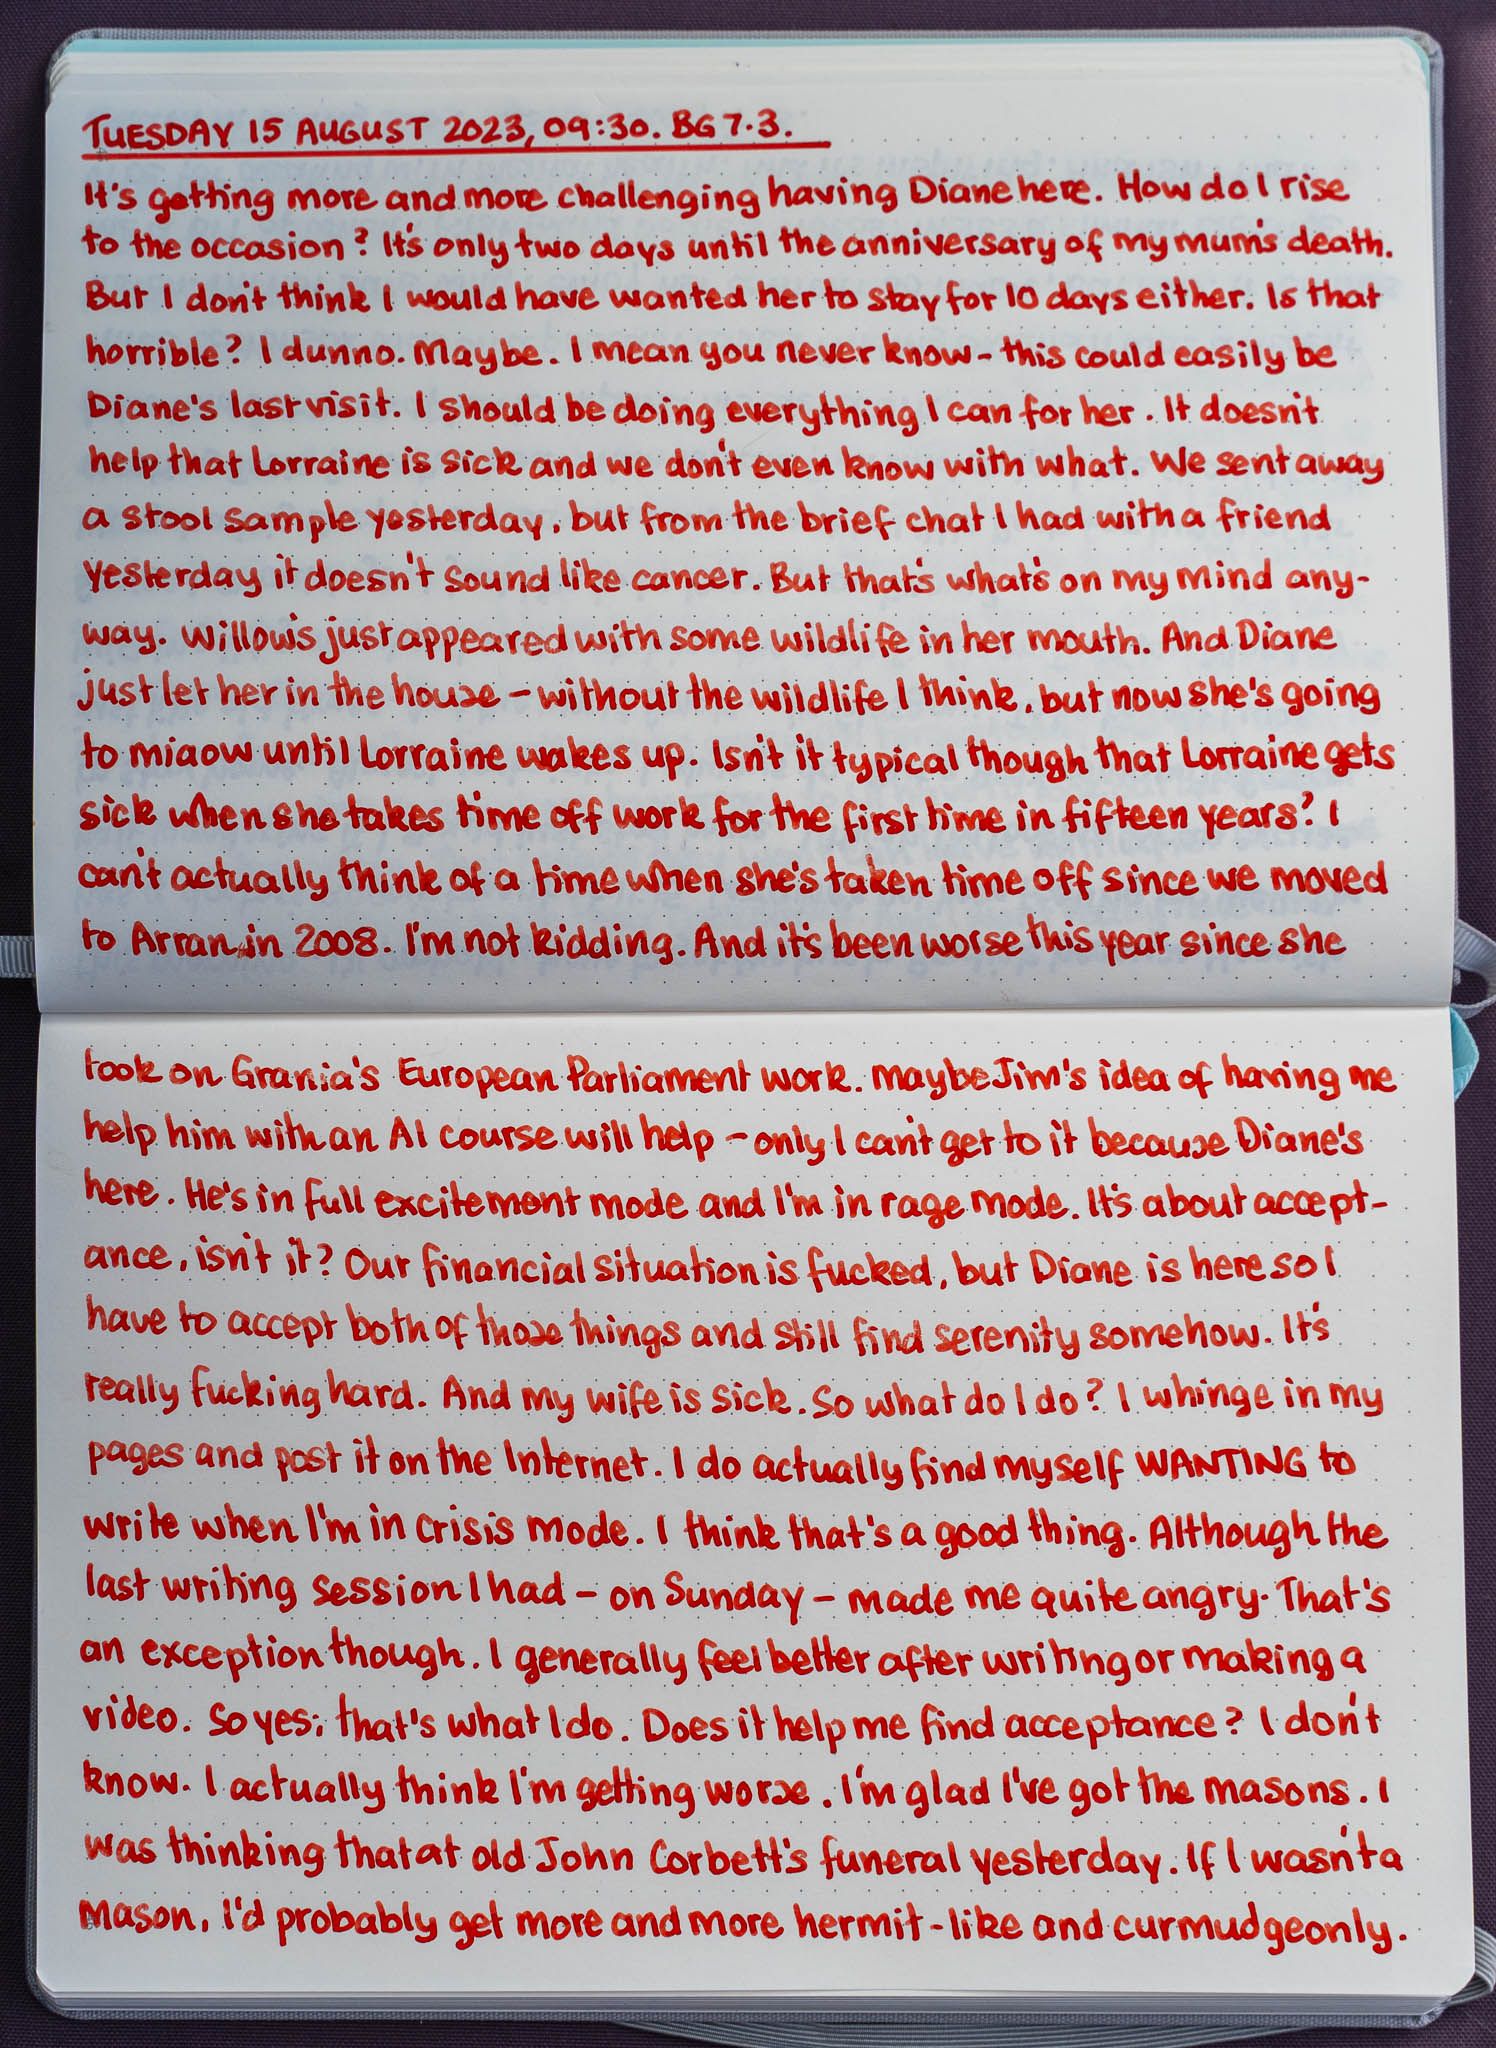 TUESDAY 15 AUGUST 2023, 09:30. BG 7.3.
It's getting more and more challenging having Diane here. How do I rise
to the occasion? It's only two days until the anniversary of my mum's death.
But I don't think I would have wanted her to stay for 10 days either. Is that
horrible? I dunno. Maybe. I mean you never know - this could easily be
Diane's last visit. I should be doing everything I can for her. It doesn't
help that Lorraine is sick and we don't even know with what. We sent away
a stool sample yesterday, but from the brief chat I had with a friend
yesterday it doesn't sound like cancer. But that's what's on my mind any-
way. Willow's just appeared with some wildlife in her mouth. And Diane
just let her in the house - without the wildlife I think, but now she's going
to miaow until Lorraine wakes up. Isn't it typical though that Lorraine gets
sick when she takes time off work for the first time in fifteen years? I
can't actually think of a time when she's taken time off since we moved
to Arran in 2008. I'm not kidding. And it's been worse this year since she
took on Grania's European Parliament work. Maybe Jim's idea of having me
help him with an AI course will help - only I can't get to it because Diane's
here. He's in full excitement mode and I'm in rage mode. It's about accept-
ance, isn't it? Our financial situation is fucked, but Diane is here so I
have to accept both of those things and still find serenity somehow. It's
really fucking hard. And my wife is sick. So what do I do? I whinge in my
pages and post it on the Internet. I do actually find myself WANTING to
write when I'm in crisis mode. I think that's a good thing. Although the
last writing session I had - on Sunday - made me quite angry. That's
an exception though. I generally feel better after writing or making a
video. So yes; that's what I do. Does it help me find acceptance? I don't
know. I actually think I'm getting worse. I'm glad I've got the masons. I
was thinking that at old John Corbett's funeral yesterday. If I wasn't a
Mason, I'd probably get more and more hermit-like and curmudgeonly.